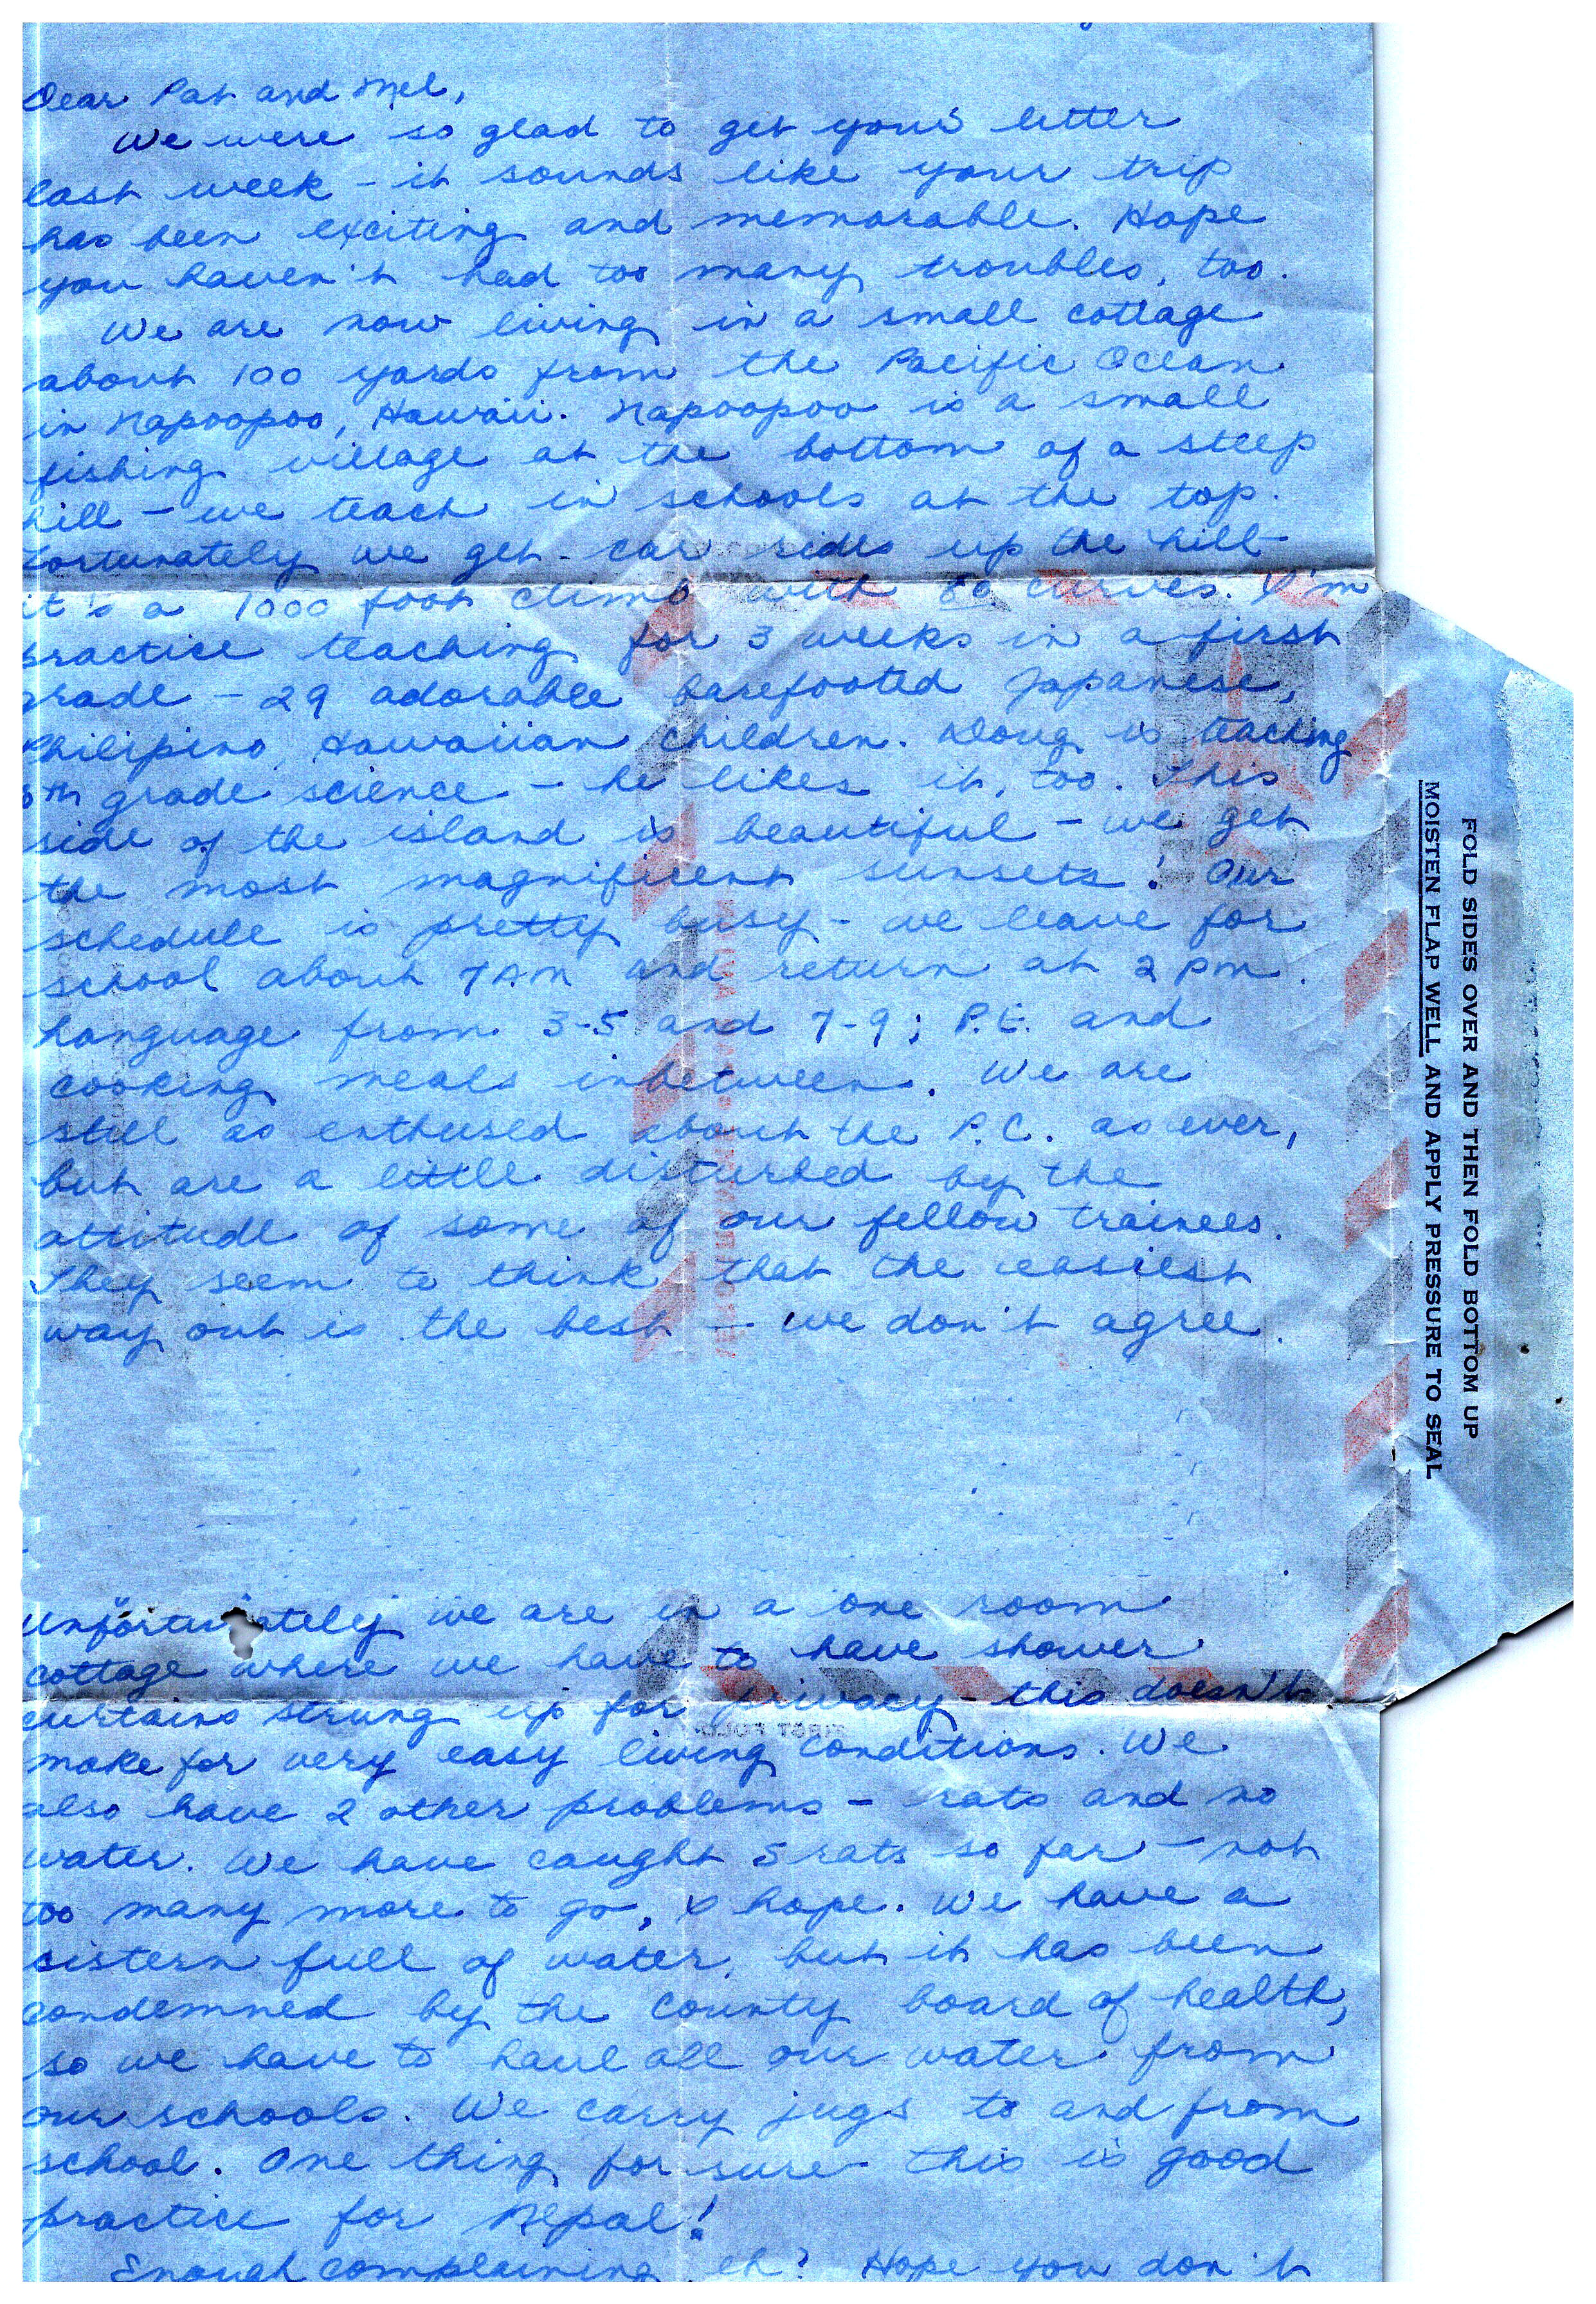 Dear Pat and Mel,
We were so glad to get your letter
last week - it sounds like your trip
has been exciting and memorable. Hope
you haven't had too many troubles, too.
We are now living in a small cottage
about 100 yards from the Pacific Ocean
in Napoopoo, Hawaii. Napoopoo is a small
fishing village at the bottom of a steep
hill - we teach in schools at the top.
Fortunately we get car rides up the hill -
it's a 1000 foot climb with 80 curves. I'm
practice teaching for 3 weeks in a first
grade - 29 adorable barefooted Japanese,
Philipino, Hawaiian children. Doug is teaching
grade science - he likes it, too. This
side of the island is beautiful - we get
the most magnificent sunsets! Our
schedule is pretty busy - we leave for
school about 7 A.M and return at 2 pm.
Language from 3-5 and 7-9; P.E. and
cooking meals inbetween. We are
still as enthused about the P.C. as ever,
but are a little disturbed by the
attitude of some of our fellow trainees.
They seem to think that the easiest
way out is the best - we don't agree.
Unfortunately we are in a one room
cottage where we have to have shower
curtains strung up for privacy - this doesn't
make for very easy living conditions. We
also have 2 other problems - rats and no
water. We have caught 5 rats so far - not
too many more to go, I hope. We have a
cistern full of water, but it has been
condemned by the county board of health,
so we have to haul all our water from
our schools. We carry jugs to and from
school. One thing for sure - this is good
practice for Nepal!
Enough complaining, eh? Hope you don't
FOLD SIDES OVER AND THEN FOLD BOTTOM UP
MOISTEN FLAP WELL AND APPLY PRESSURE TO SEAL
FIRST FOLD